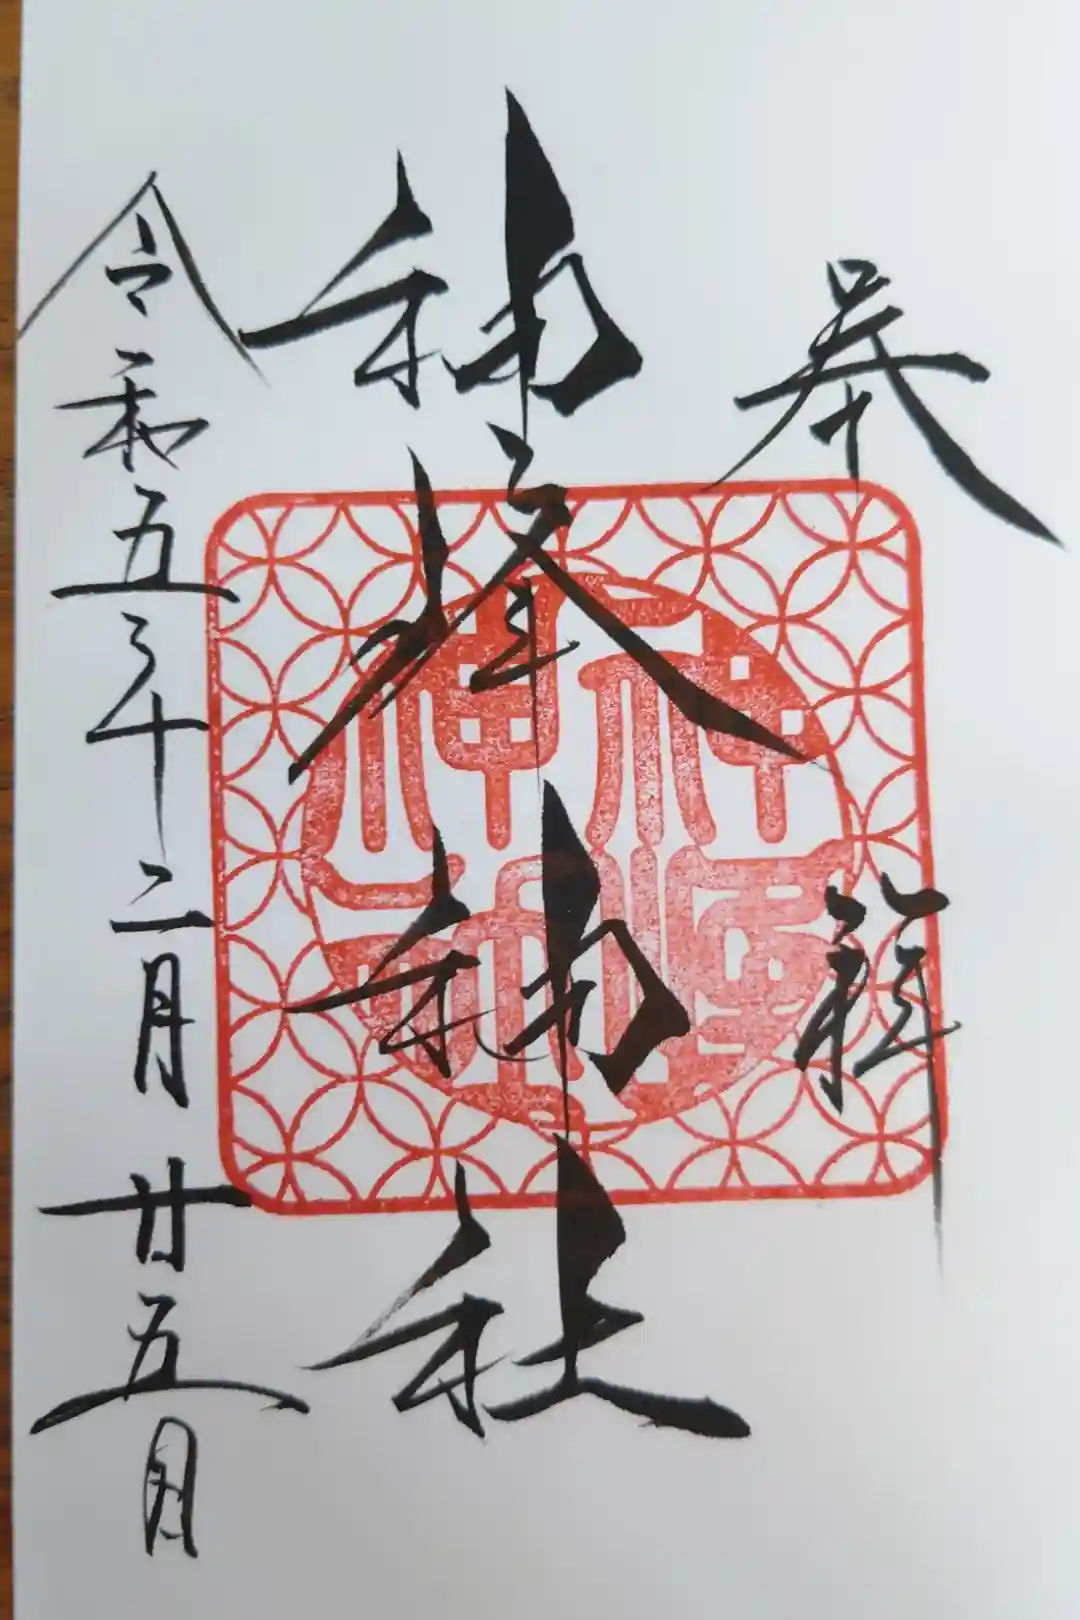 奉拝
神峰神社
令和五年十二月廿五日